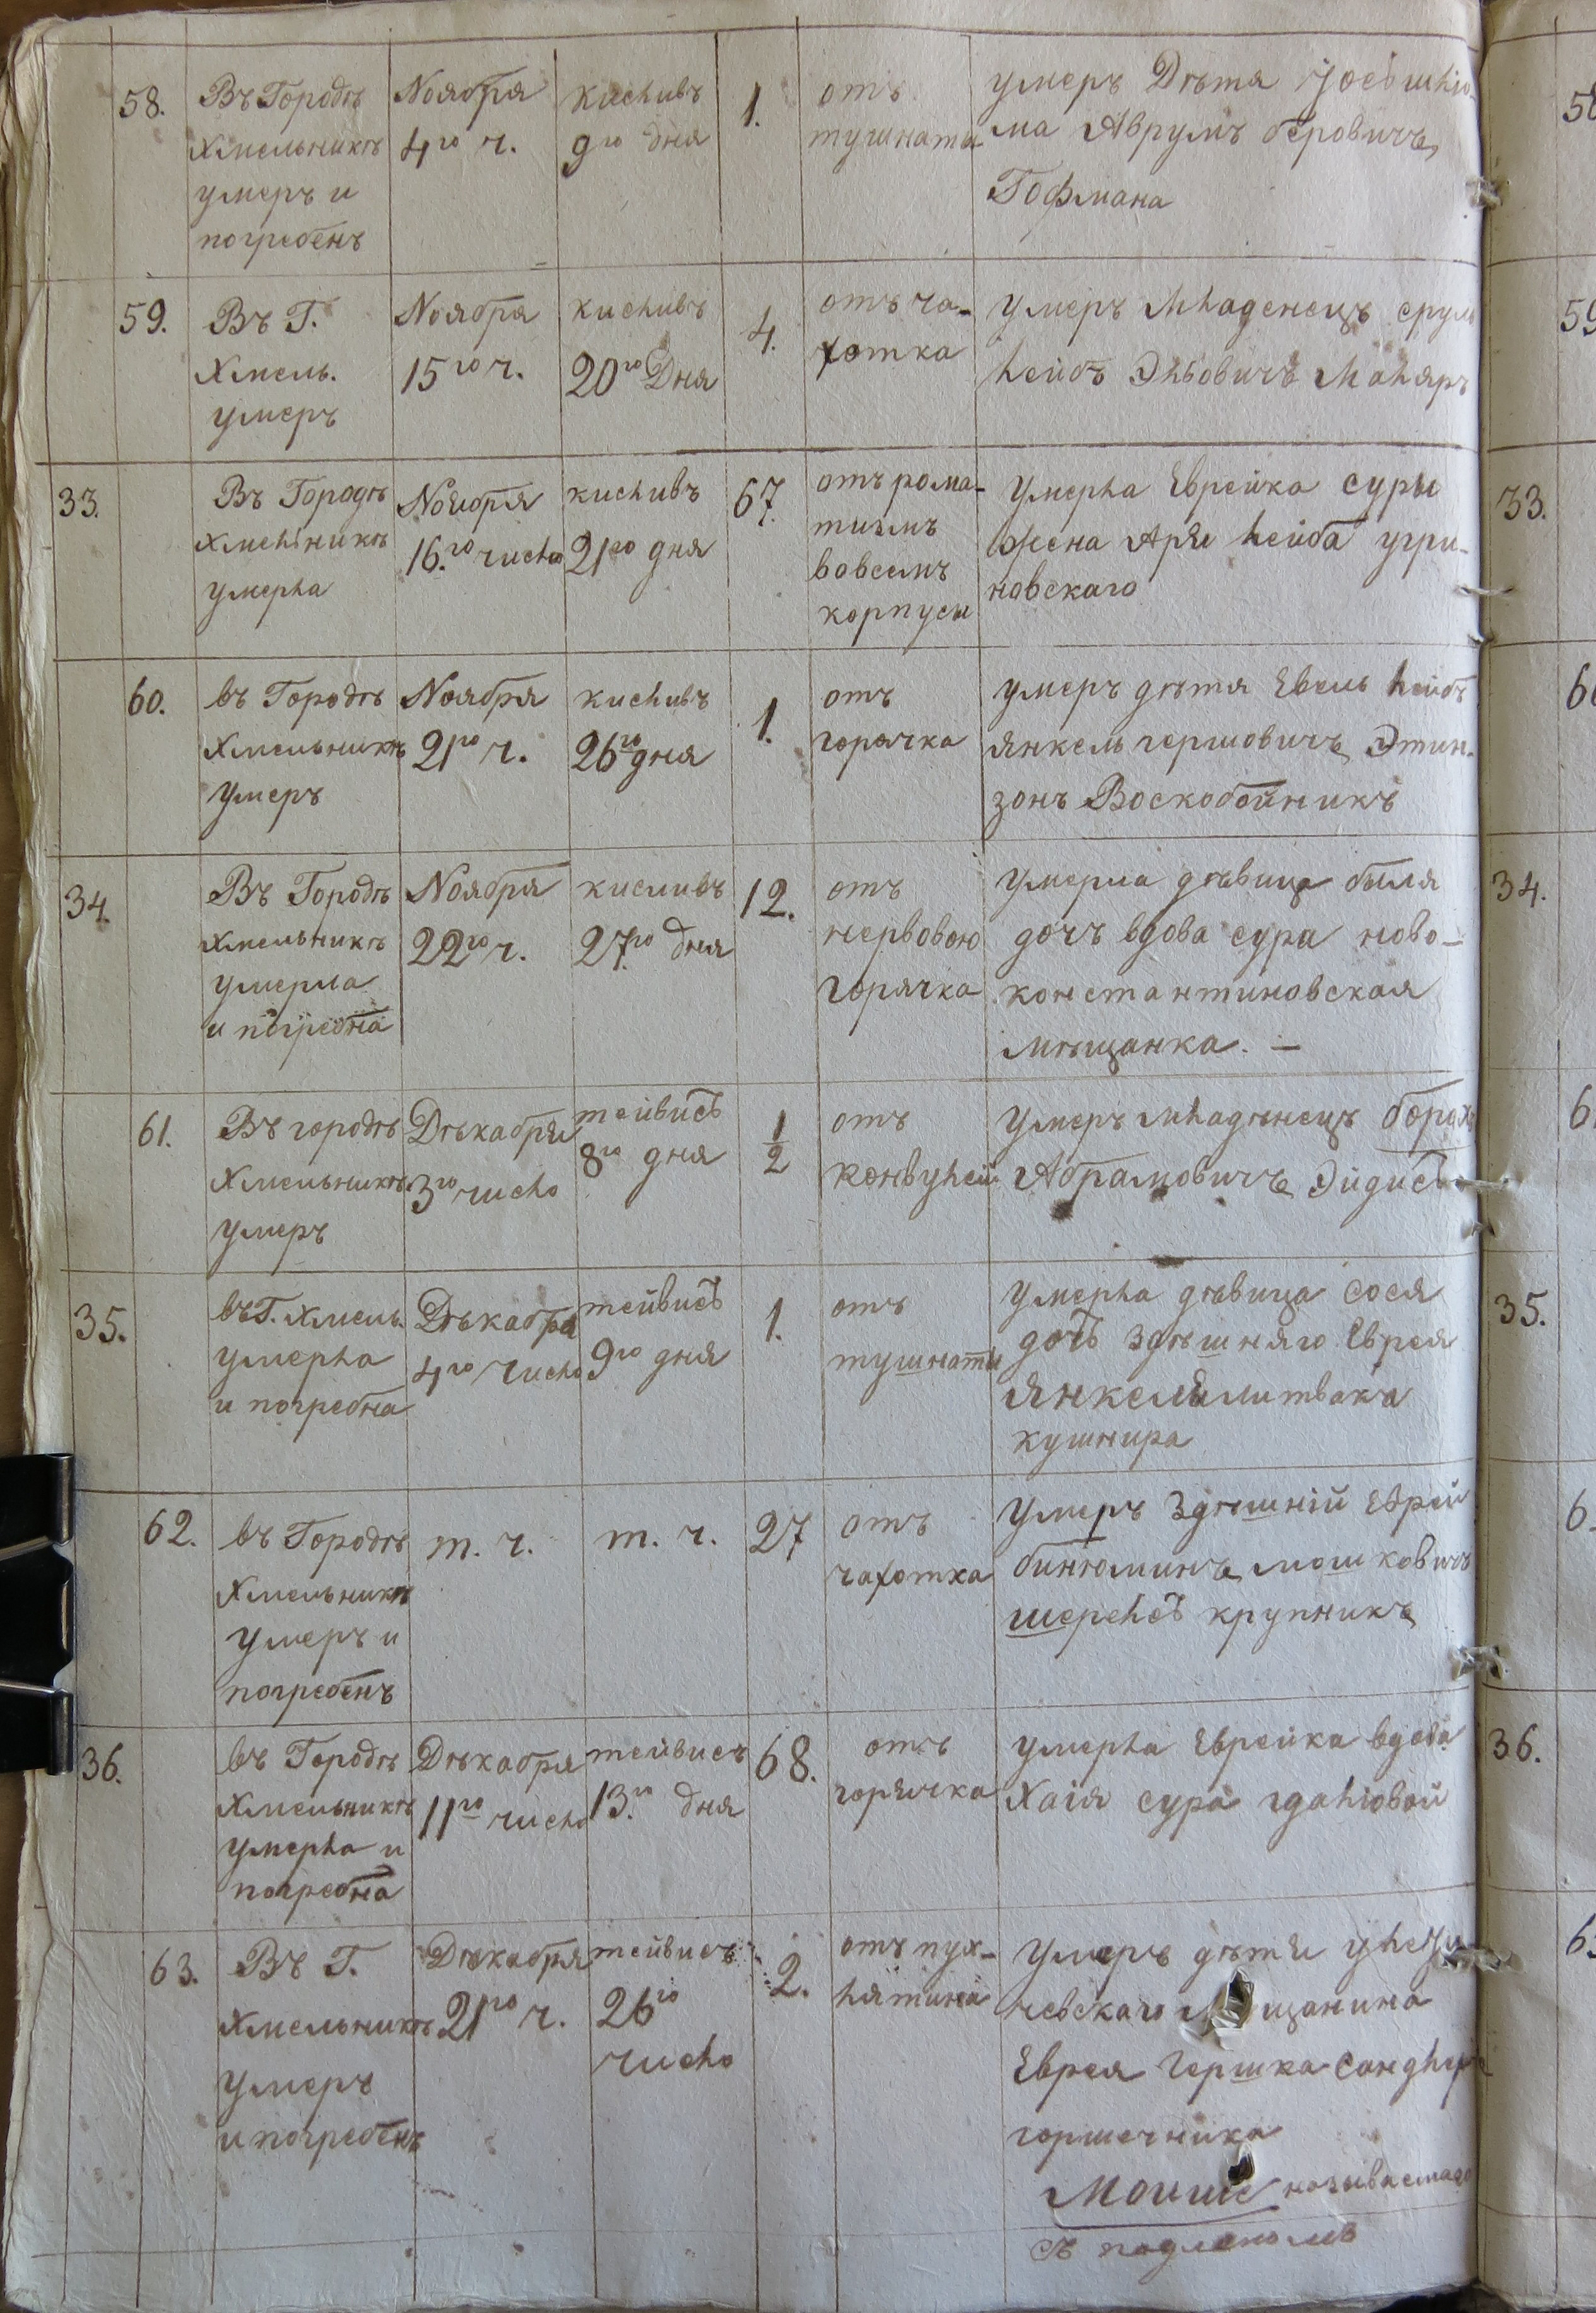 58.
Въ Городѣ
Хмельникѣ
умеръ и
погребенъ
Ноября
4го ч.
кисливъ
9го дня
1.
отъ
тушноты
умеръ Дѣтя
ма Аврумъ беровичъ
Гофмана
58
59.
Въ Г.
Хмель.
умеръ
Ноября
15го ч.
кисливъ
20го Дня
4.
отъ ча-
хотка
Умеръ младенецъ срул
лейбъ Эльовичъ Маляръ
59
33.
Въ Городѣ
Хмельникѣ
умерла
Ноября
16.го число
кисливъ
21го дня
67.
отъ рома-
тизмъ
вовсемъ
корпусы
Умерла Еврейка суры
жена Арія лейба угри-
новскаго
33.
60.
въ Городѣ
Хмельникѣ
умеръ
Ноября
21го ч.
кисливъ
26го дня
1.
отъ
горячка
умеръ дѣтя Евель лейбъ
янкель гершовичъ Этин-
зонъ Воскобойникъ
34.
Въ Городѣ
Хмельникѣ
умерла
и погребна
Ноября
22го ч.
кисливъ
27.го дня
12.
отъ
нервовою
горячка
Умерла дѣвица быля
дочъ вдова сура ново-
константиновская
мѣщанка. —
34.
61.
Въ городѣ
Хмельникѣ
умеръ
Дѣкабря
3го число
тейвисъ
8го дня
1/2
отъ
конвулсій
Умеръ младѣнецъ борахъ
Абрамовичъ Эйдисъ
35.
въ Г. Хмель.
умерла
и погребна
Дѣкабря
4го число
тейвисъ
9го дня
1.
отъ
тушноты
Умерла дѣвица сося
дочъ здѣшняго Еврея
Янкеля литвака
кушнира
35.
62.
въ Городѣ
Хмельникѣ
умеръ и
погребенъ
т. ч.
т. ч.
27
отъ
чахотка
Умеръ здѣшній Еврей
бинюминъ мошковичъ
шерелсъ крупникъ
36.
въ Городѣ
Хмельникѣ
умерла и
погребна
Дѣкабря
11го число
тейвисъ
13.го дня
68.
отъ
горячка
Умерла Еврейка вдова
Хаія сура гдалювой
36.
63.
Въ Г.
Хмельникѣ
умеръ
и погребенъ
Дѣкабря
21го ч.
тейвисъ
26го
число
2.
отъ пух-
лятина
Умеръ дѣтя
чевскаго щанина
Еврея Гершка
горшечника
Моише називаемаго
съ